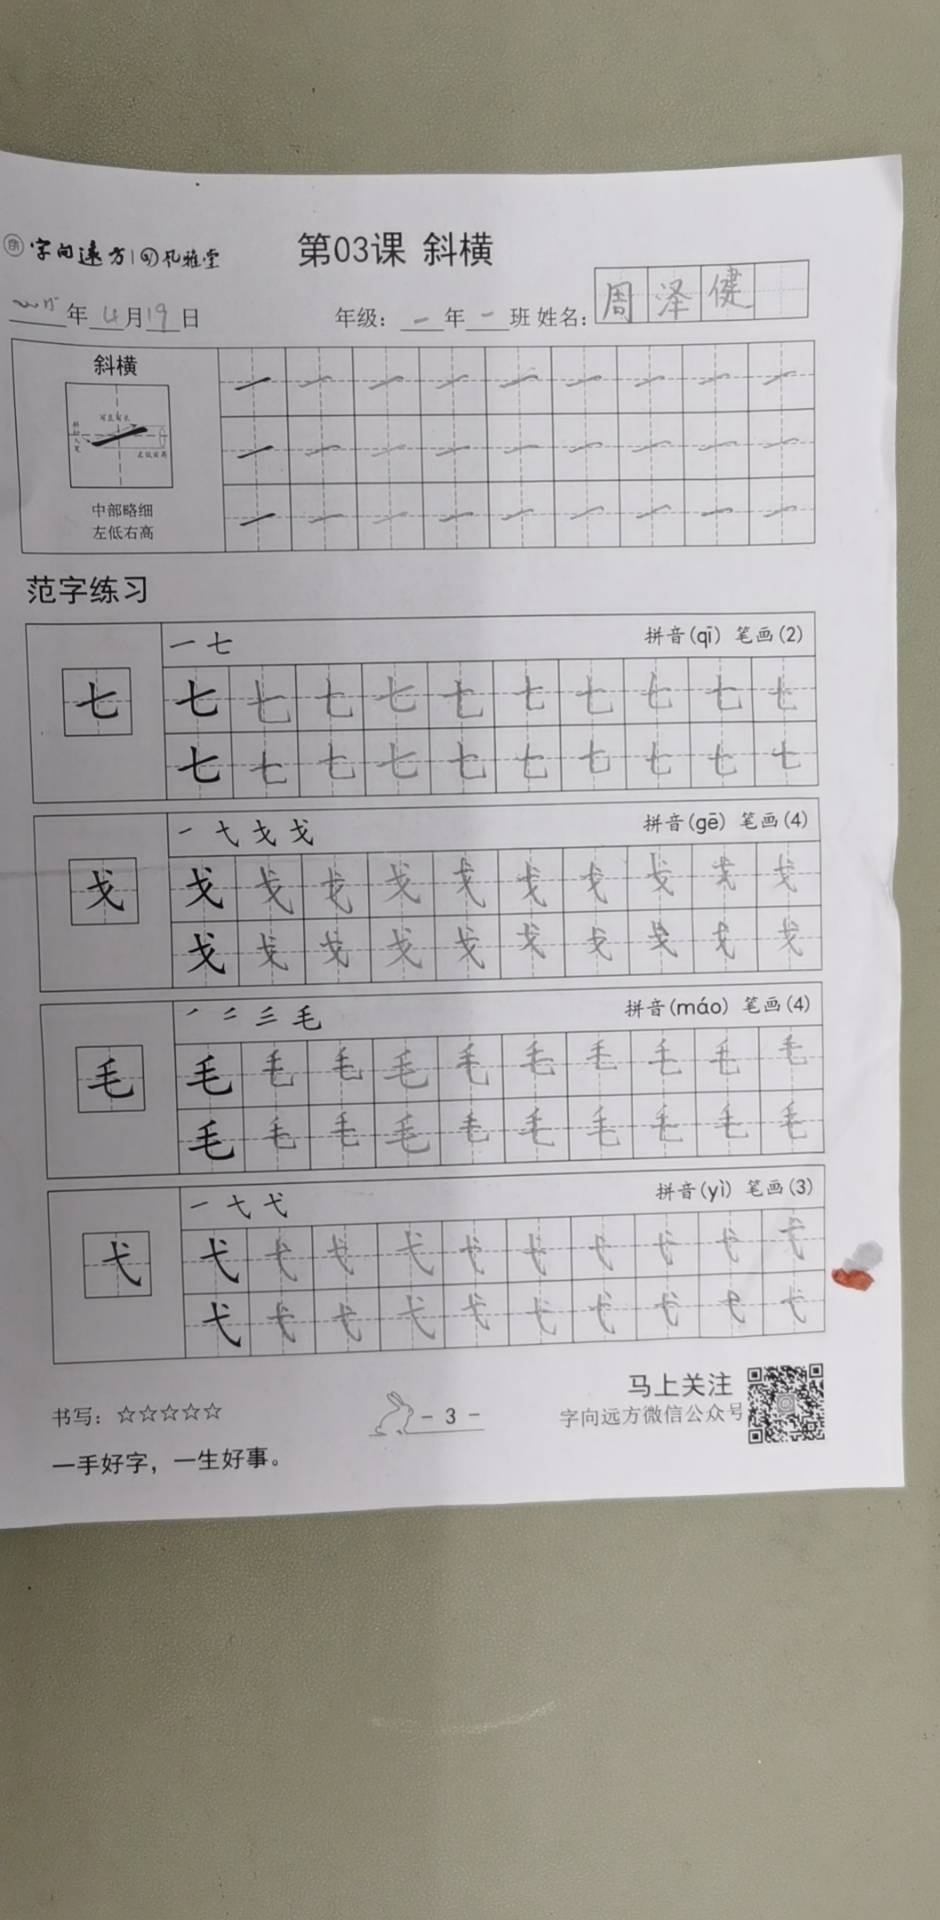 字向远方 孔雅堂
第03课 斜横
年4月19日
年级：一年一班 姓名：周泽健
斜横
中部略细
左低右高
范字练习
一 七 拼音(qī) 笔画(2)
七 七 七 七 七 七 七 七 七 七 七
七 七 七 七 七 七 七 七 七 七
一 弋 戈 戈 拼音(gē) 笔画(4)
戈 戈 戈 戈 戈 戈 戈 戈 戈 戈 戈
戈 戈 戈 戈 戈 戈 戈 戈 戈 戈
毛 拼音(máo) 笔画(4)
毛 毛 毛 毛 毛 毛 毛 毛 毛 毛 毛
毛 毛 毛 毛 毛 毛 毛 毛 毛 毛
一 七 弋 拼音(yì) 笔画(3)
弋 弋 弋 弋 弋 弋 弋 弋 弋 弋 弋
弋 弋 弋 弋 弋 弋 弋 弋 弋 弋
马上关注
书写：☆☆☆☆☆
- 3 -
字向远方微信公众号
一手好字，一生好事。